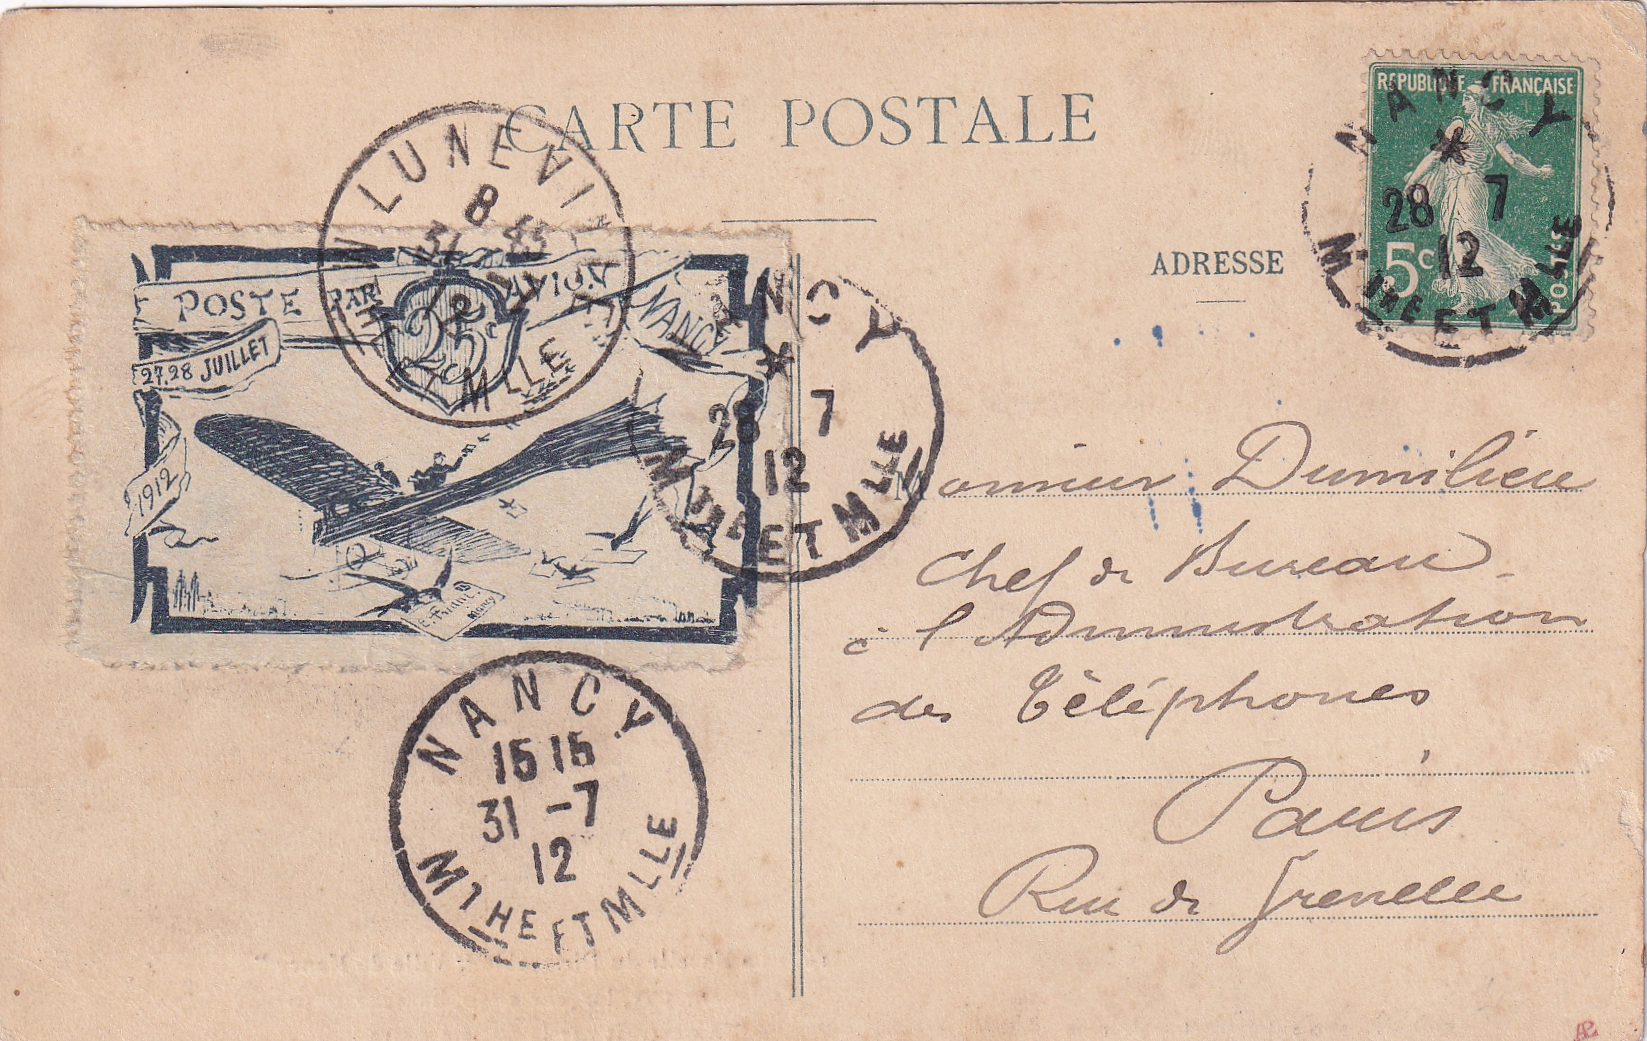 CARTE POSTALE
ADRESSE
REPUBLIQUE FRANÇAISE
5c
POSTES
NANCY
28 7
12
Mthe ET Mlle
LUNEVILLE
8 45
31 - 7
12
Mthe ET Mlle
POSTE PAR AVION
NANCY
25c
27, 28 JUILLET
1912
NANCY
28 7
12
Mthe ET Mlle
NANCY
15 15
31 -7
12
Mthe ET Mlle
Monsieur Dumilieu
Chef de Bureau
à l'Administration
des Téléphones
Paris
Rue de Grenelle